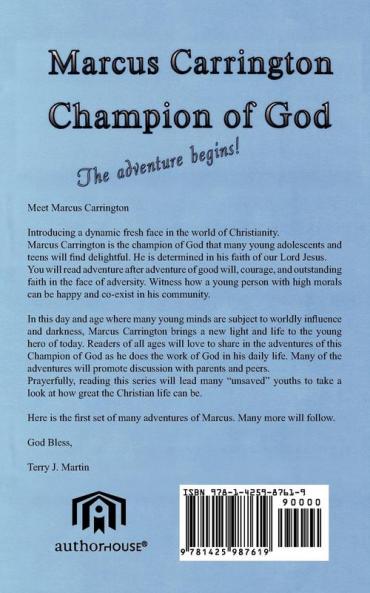 Marcus Carrington
Champion of God
The adventure begins!
Meet Marcus Carrington
Introducing a dynamic fresh face in the world of Christianity.
Marcus Carrington is the champion of God that many young adolescents and
teens will find delightful. He is determined in his faith of our Lord Jesus.
You will read adventure after adventure of good will, courage, and outstanding
faith in the face of adversity. Witness how a young person with high morals
can be happy and co-exist in his community.
In this day and age where many young minds are subject to worldly influence
and darkness, Marcus Carrington brings a new light and life to the young
hero of today. Readers of all ages will love to share in the adventures of this
Champion of God as he does the work of God in his daily life. Many of the
adventures will promote discussion with parents and peers.
Prayerfully, reading this series will lead many “unsaved” youths to take a
look at how great the Christian life can be.
Here is the first set of many adventures of Marcus. Many more will follow.
God Bless,
Terry J. Martin
authorHOUSE®
ISBN 978-1-4259-8761-9
90000
9 781425 987619